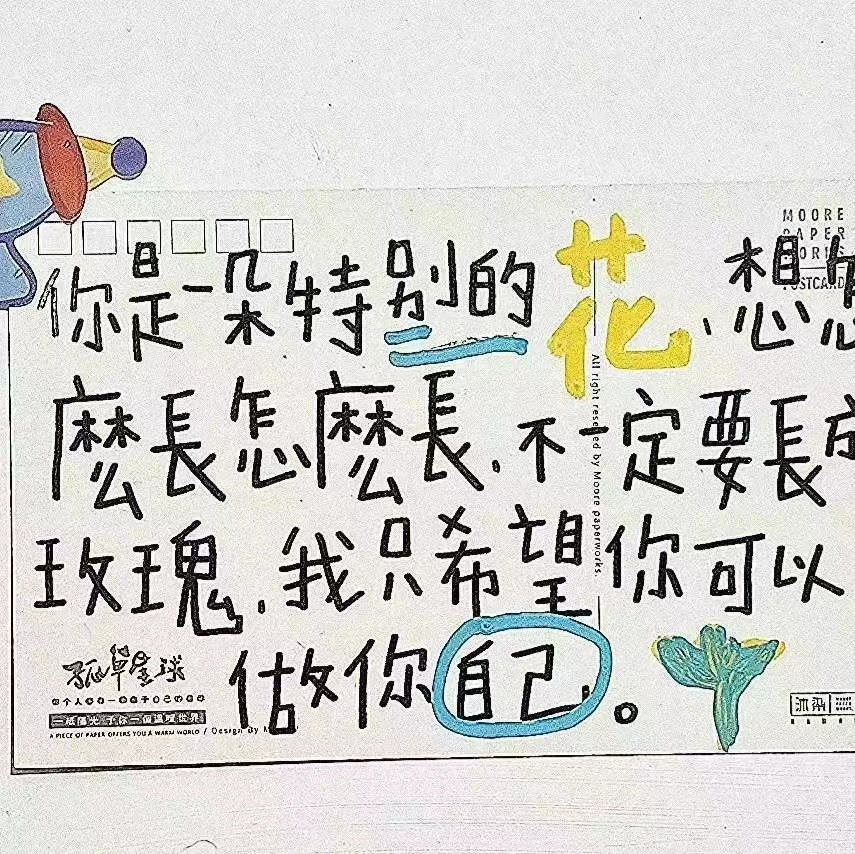 MOORE
PAPER
WORKS
POSTCARD
你是一朵特别的花,想怎
麽長怎麽長,不一定要長成
玫瑰,我只希望你可以
做你自己。
All right reseved by Moore paperworks.
孤單星球
一紙陽光 予你一個溫暖世界
A PIECE OF PAPER OFFERS YOU A WARM WORLD / Design By M